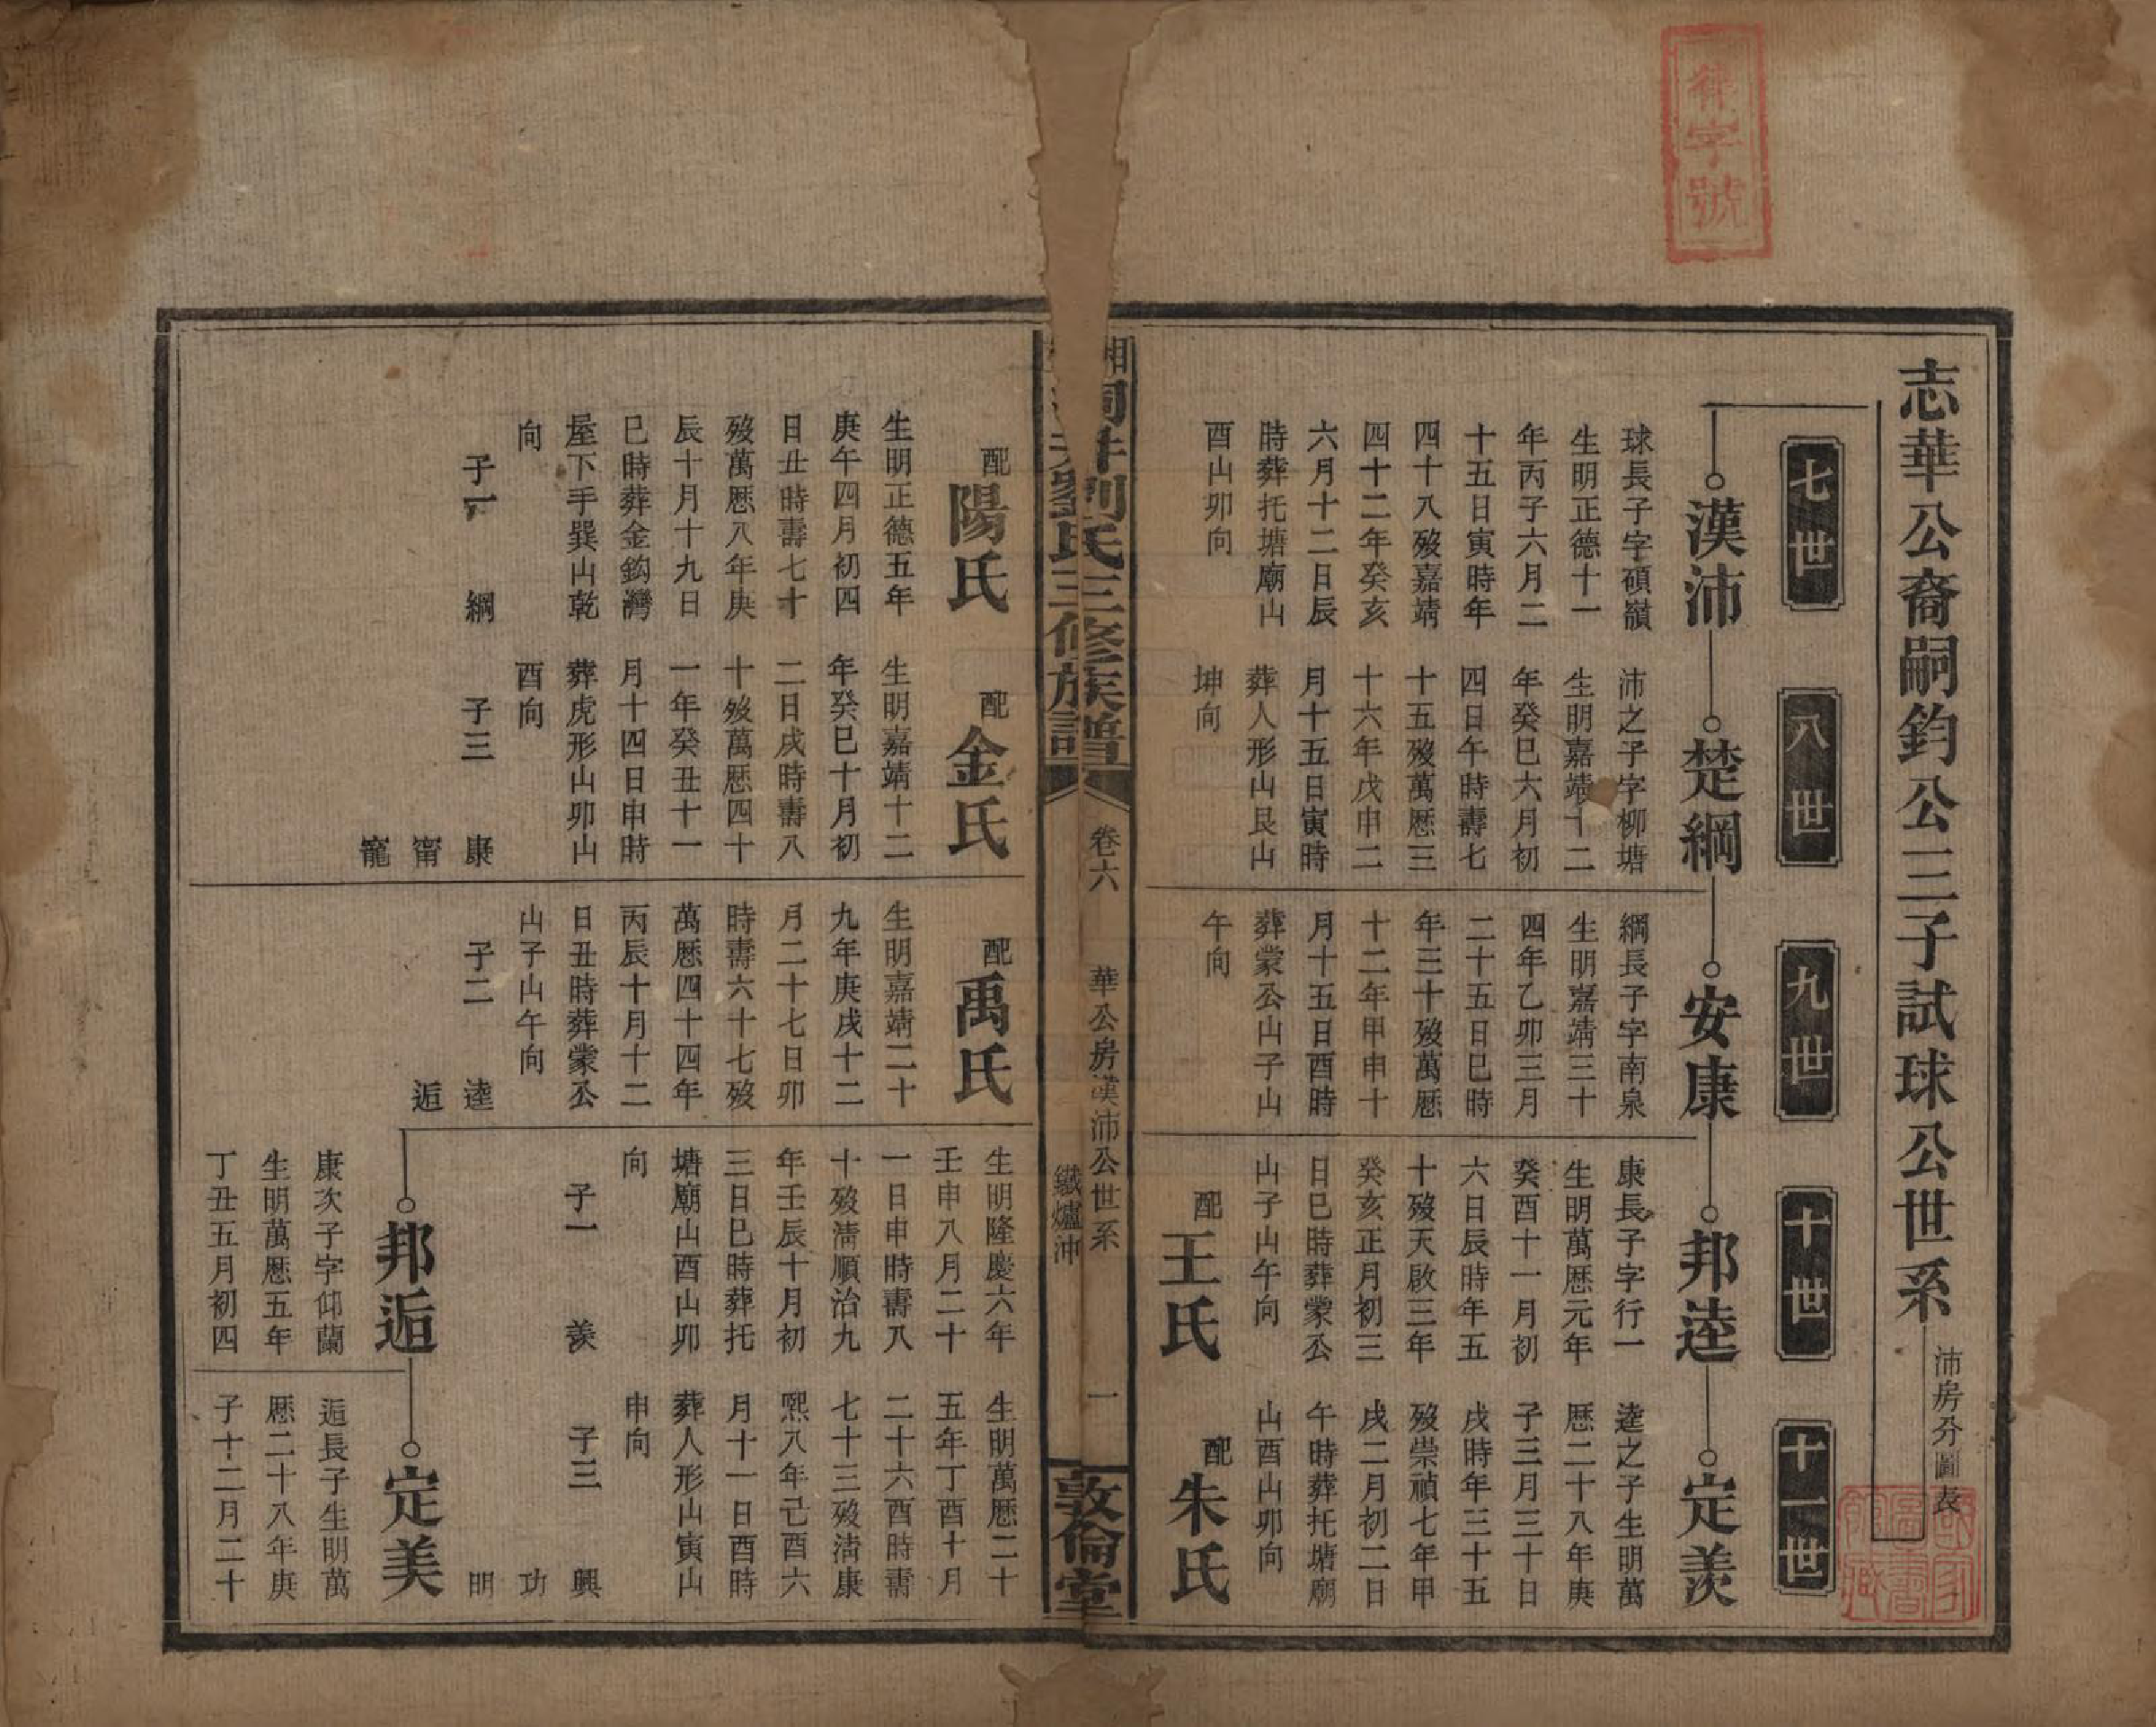 志華公裔嗣鈞公三子試球公世系
沛房分圖表
七世
八世
九世
十世
十一世
漢沛
球長子字碩嶺
生明正德十一
年丙子六月二
十五日寅時年
四十八殁嘉靖
四十二年癸亥
六月十二日辰
時葬托塘廟山
酉山卯向
楚綱
沛之子字柳塘
生明嘉靖十二
年癸巳六月初
四日午時壽七
十五殁萬厯三
十六年戊申二
月十五日寅時
葬人形山艮山
坤向
安康
綱長子字南泉
生明嘉靖三十
四年乙卯三月
二十五日巳時
年三十殁萬厯
十二年甲申十
月十五日酉時
葬蒙公山子山
午向
邦逵
康長子字行一
生明萬厯元年
癸酉十一月初
六日辰時年五
十殁天啟三年
癸亥正月初三
日巳時葬蒙公
山子山午向
配王氏
定羨
逵之子生明萬
厯二十八年庚
子三月三十日
戌時年三十五
殁崇禎七年甲
戌二月初二日
午時葬托塘廟
山酉山卯向
配朱氏
劉氏三修族譜
卷六
華公房漢沛公世系
鐵爐沖
一
敦倫堂
配陽氏
生明正德五年
庚午四月初四
日丑時壽七十
殁萬厯八年庚
辰十月十九日
巳時葬金鈎灣
屋下手巽山乾
向
子一 綱
配金氏
生明嘉靖十二
年癸巳十月初
二日戌時壽八
十殁萬厯四十
一年癸丑十一
月十四日申時
葬虎形山卯山
酉向
子三 康
甯
寵
配禹氏
生明嘉靖二十
九年庚戌十二
月二十七日卯
時壽六十七殁
萬厯四十四年
丙辰十月十二
日丑時葬蒙公
山子山午向
子二 逵
逅
生明隆慶六年
壬申八月二十
一日申時壽八
十殁清順治九
年壬辰十月初
三日巳時葬托
塘廟山酉山卯
向
子一 羨
生明萬厯二十
五年丁酉十月
二十六酉時壽
七十三殁清康
熙八年己酉六
月十一日酉時
葬人形山寅山
申向
子三 興
功
明
邦逅
康次子字仰蘭
生明萬厯五年
丁丑五月初四
定美
逅長子生明萬
厯二十八年庚
子十二月二十